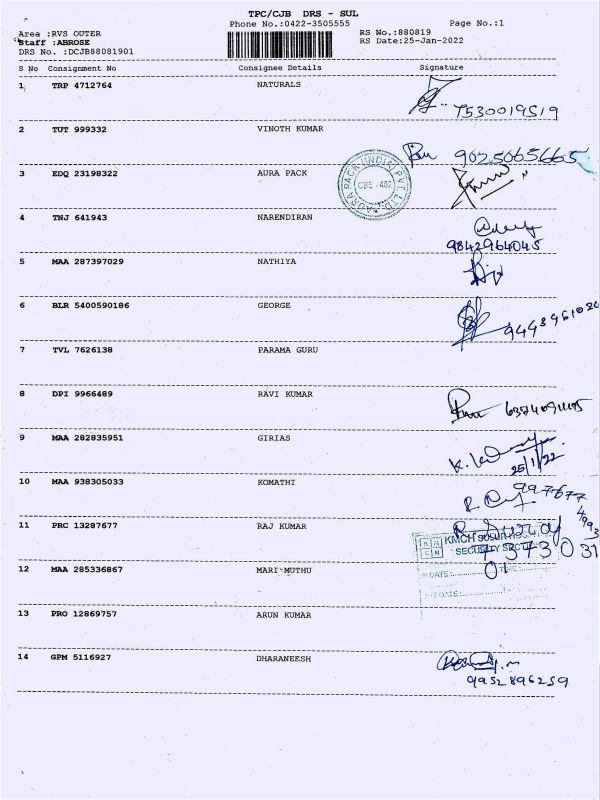 TPC/CJB DRS - SUL
Phone No.:0422-3505555 Page No.:1
Area :RVS OUTER RS No.:880819
Staff :ABROSE RS Date:25-Jan-2022
DRS No. :DCJB88081901
S No Consignment No Consignee Details Signature
1 TRP 4712764 NATURALS
7530019519
2 TUT 999332 VINOTH KUMAR
9025065665
3 EDQ 23198322 AURA PACK
AURA PACK (INDIA) PVT. LTD.
CBE - 402
4 TNJ 641943 NARENDIRAN
9842964045
5 MAA 287397029 NATHIYA
6 BLR 5400590186 GEORGE
7 TVL 7626138 PARAMA GURU
8 DPI 9966489 RAVI KUMAR
9 MAA 282835951 GIRIAS
25/1/22
10 MAA 938305033 KOMATHI
997677
11 PRC 13287677 RAJ KUMAR
KMCH
SECURITY
12 MAA 285336867 MARI MUTHU
DATE: TIME:
13 PRO 12869757 ARUN KUMAR
14 GPM 5116927 DHARANEESH
9952896259